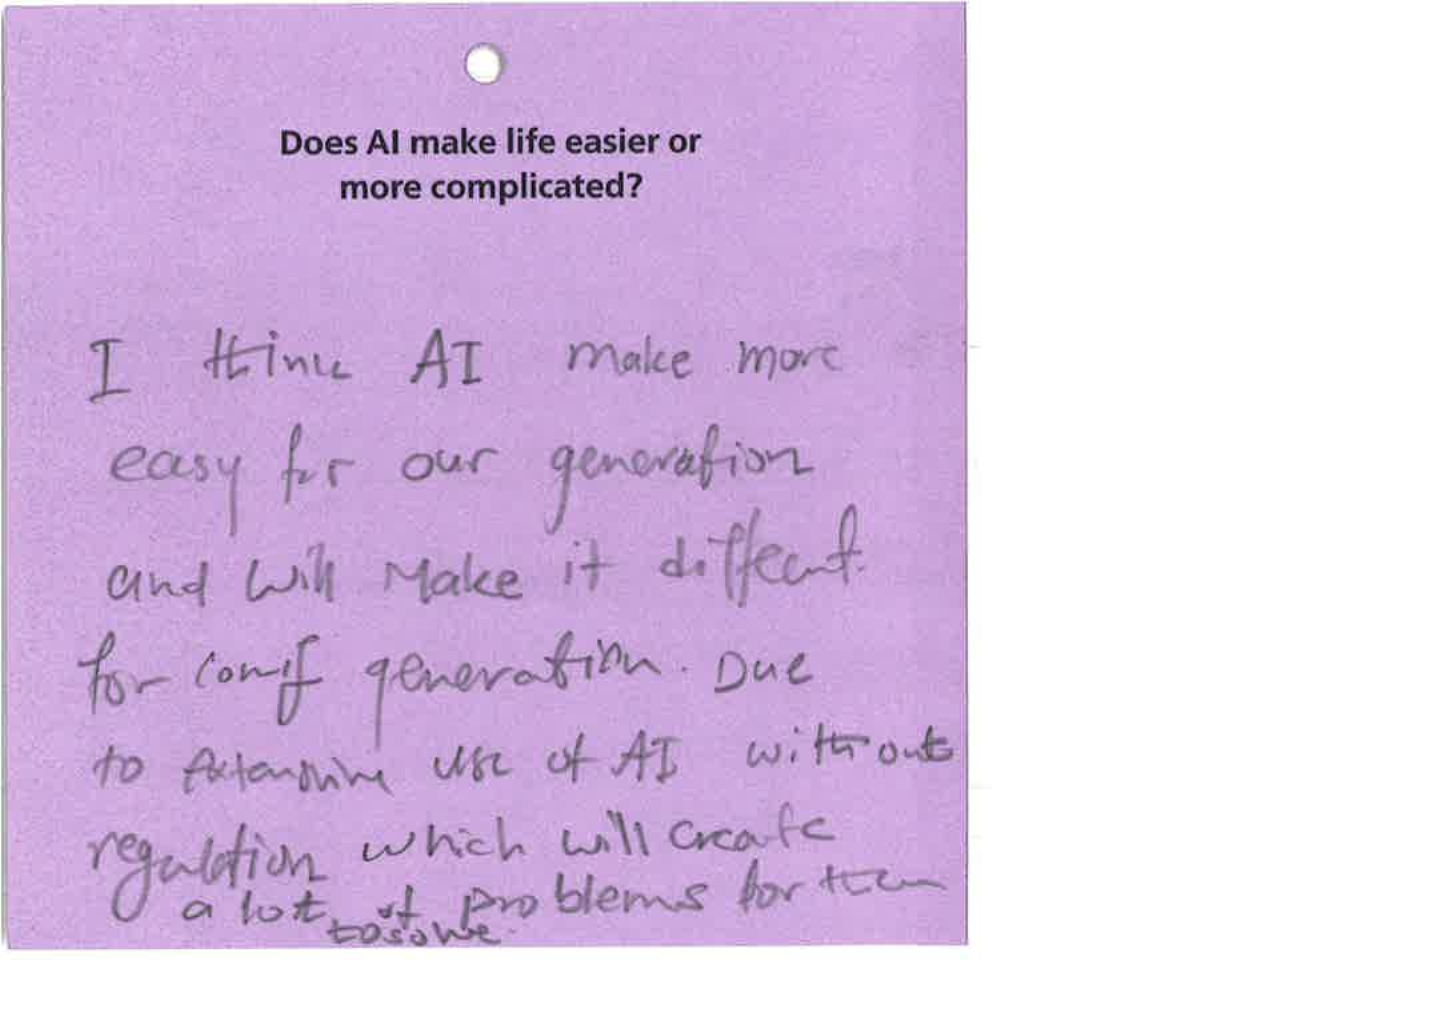 Does AI make life easier or
more complicated?
I think AI make more
easy for our generation
and will Make it
for generation. Due
to use of AI without
regulation which will create
a lot of problems for them
to solve.